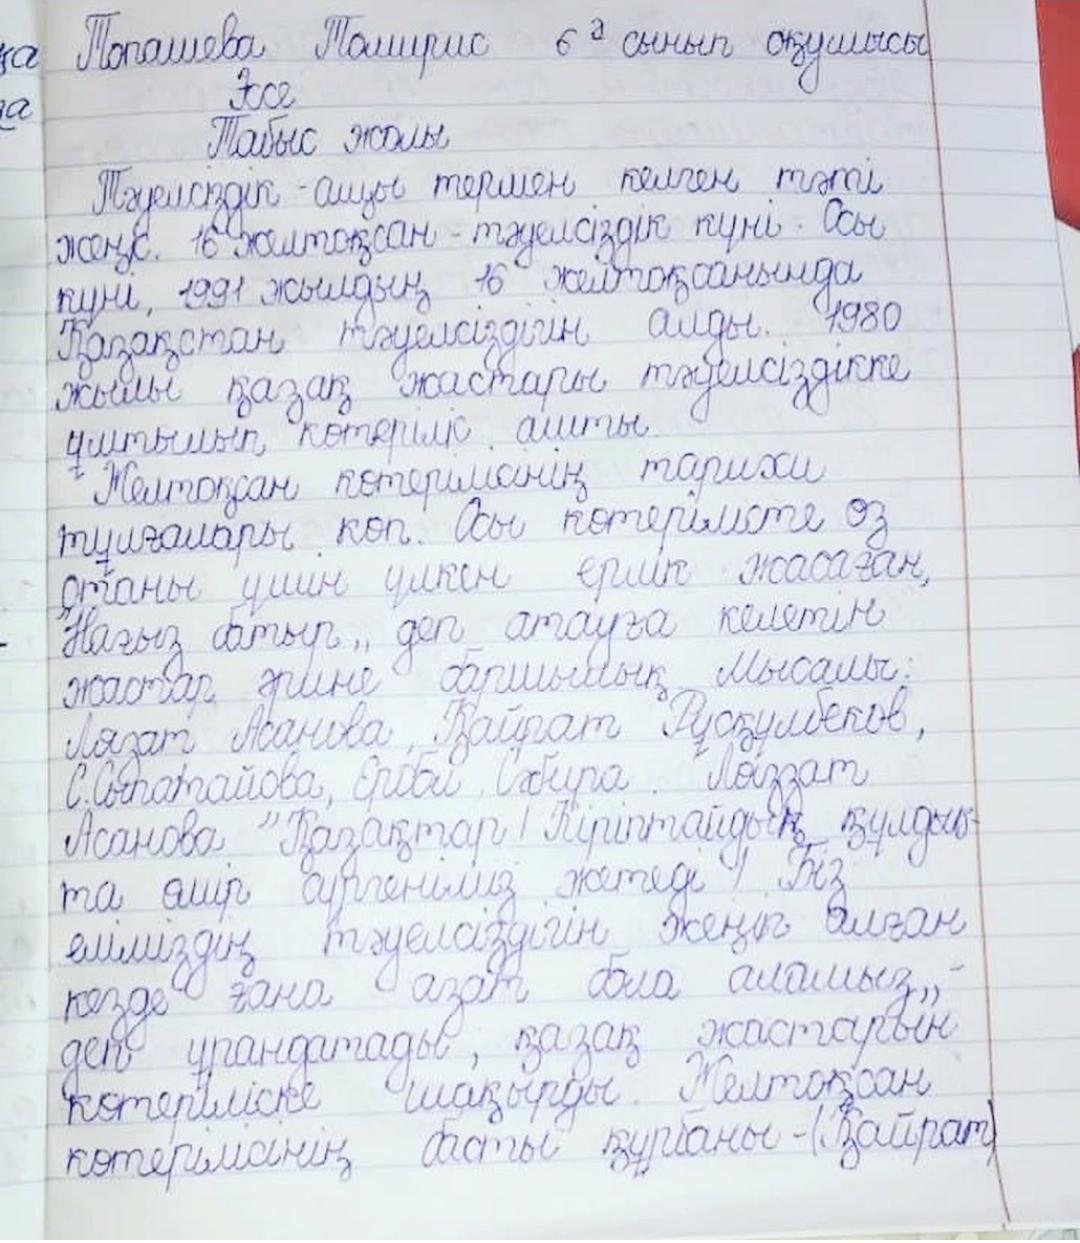 қа
да
Топашева Томирис 6 ә сынып оқушысы
Эссе
Табыс жолы
Тәуелсіздік - ащы термен келген тәтті
жеңіс. 16 желтоқсан - тәуелсіздік күні. Осы
күні, 1991 жылдың 16 желтоқсанында
Қазақстан тәуелсіздігін алды. 1980
жылы қазақ жастары тәуелсіздікке
ұмтылып, көтеріліс ашты.
Желтоқсан көтерілісінің тарихи
тұлғалары көп. Осы көтерілісте өз
отаны үшін үлкен ерлік жасаған,
"Нағыз батыр" деп атауға келетін
жастар әрине баршылық. Мысалы:
Ляззат Асанова, Қайрат Рысқұлбеков,
С.Сыпатайова, Ербол, Сабира. Ляззат
Асанова "Қазақтар! Кіріптайдың құлдық-
та өмір сүргеніміз жетеді! Біз
еліміздің тәуелсіздігін жеңіп алған
кезде ғана азат бола аламыз" -
деп ұрандатады, қазақ жастарын
көтеріліске шақырды. Желтоқсан
көтерілісінің басты құрбаны - (Қайрат)